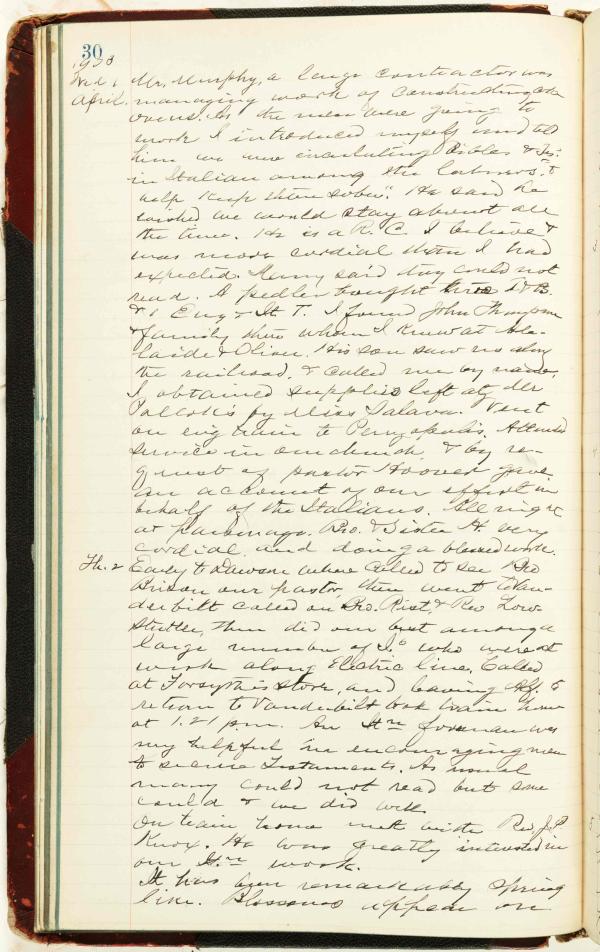 30
1903
Wed. 1 Mr. Murphy, a large contractor was
April. managing work of constructing coke
ovens. As the men were going to
work I introduced myself and told
him we were circulating Bibles & Tes.
in Italian among the laborers, to
help keep them sober". He said he
wished we would stay about all
the time. He is a R. C. I believe &
was more cordial than I had
expected. Many said they could not
read. A pedler bought three I. B.
& 1 Eng. & It. T. I found John Thompson
& family there whom I knew at Ade-
laide & Oliver. His son saw us along
the railroad, & called me by name.
I obtained supplies left at Mr
Pollok's by Miss Salava. Went
on evg train to Perryopolis. Attended
service in our church, & by re-
quest of pastor Hoover gave
an account of our effort in
behalf of the Italians. All night
at parsonage. Bro. & Sister H. very
cordial, and doing a blessed work.
Th. 2 Early to Dawson where called to see Bro
Brison our pastor, then went to Van-
derbilt called on Bro. Rist, & Rev Low-
Stutler, then did our best among a
large number of I.s who were at
work along Electric line, Called
at Forsythe's store, and leaving Alf. to
return to Vanderbilt took train home
at 1.21 p.m. An Itn foreman was
very helpful in encouraging men
to secure Testaments. As usual
many could not read but some
could & we did well.
On train home met with Rev. J. P.
Knox. He was greatly interested in
our Itn work.
It has been remarkably Spring
like. Blossoms appear on